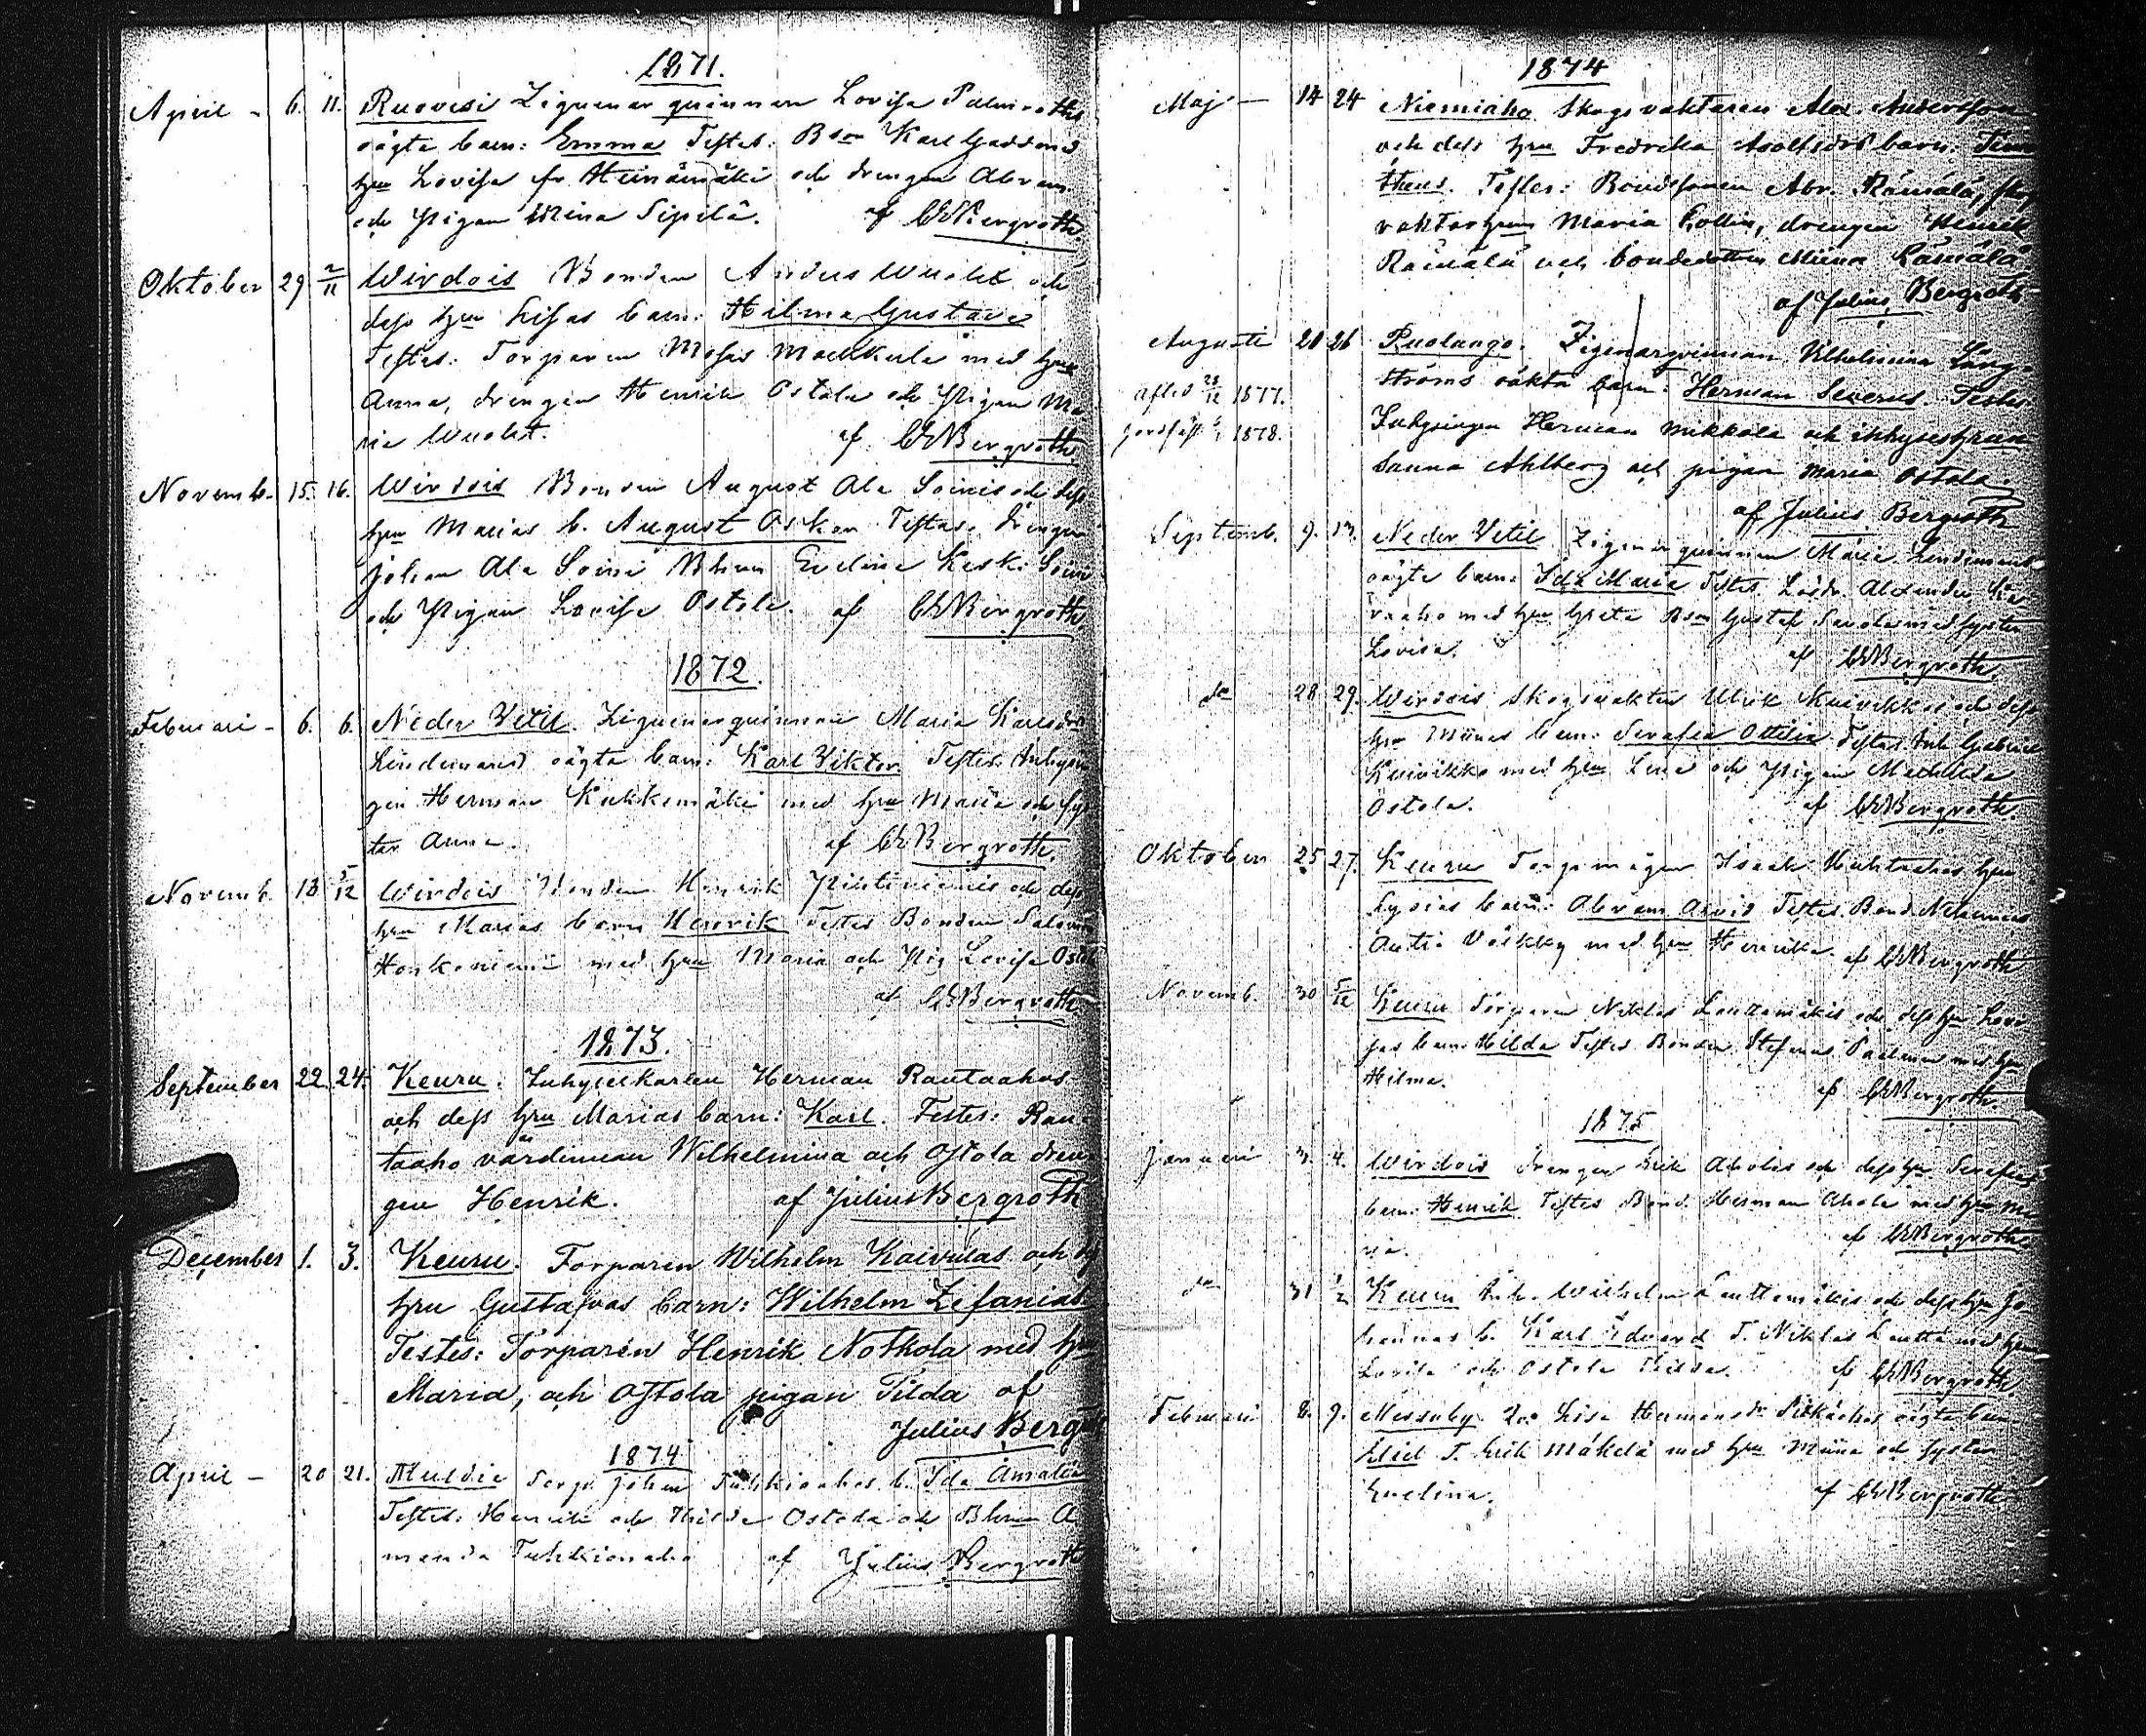 1871.
April - 6. 11. Ruovesi Ziguenar quinnan Lovisa Palmroths
oägta barn: Emma Testes: Bson Karl
hru Lovisa fr Heinämäki och drengen Abram
och Pigan Mina Sipilä. af CEBergroth.
Oktober 29 2/11 Wirdois Bonden Anders Wuolit och
dess hru Lisas barn: Hilma Gustava
Testes: Torparen Mosas med hru
Anna, drengen Henrik Ostola och Pigan Ma
ria Wuolit. af CEBergroth.
Novemb. 15. 16. Wirdois Bonden August Ala Soinis och dess
hru Marias b. August Oskar Testes. drengen
Johan Ala Soini Bhrun Evelina Keski Soini
och Pigan Lovisa Ostola. af CEBergroth
1872.
Februari - 6. 6. Neder Vetil. Ziguenarquinnan Maria Karlsdrs
Lindemans oägta barn: Karl Viktor. Testes: Inhysin
gen Herman Kukkomäki med hru Maria och sys
ter Anna. af CEBergroth.
Novemb. 13 5/12 Wirdois Bonden Henrik och dess
hru Marias barn Henrik Testes Bonden Salomon
Honkoniemi med hru Maria och Pig Lovisa Ostola
af CEBergroth
1873.
September 22. 24. Keuru. Inhysekarlen Herman Rautaahos
och dess hru Marias barn: Karl. Testes: Rau-
taaho värdinnan Wilhelmina och Ostola dren-
gen Henrik. af Julius Bergroth
December 1. 3. Keuru. Torparen Wilhelm Koivulas och
hru Gustafvas barn: Wilhelm Zefanias.
Testes: Torparen Henrik Notkola med hru
Maria, och Ostola pigan Tilda af
Julius Berg
1874
April - 20 21. Multia Torp. Johan Tuhkionahos b. Ida Amalia
Testes: Henrik och Thilda Ostola och Bhrun A
manda Tuhkionaho af Julius Bergroth
1874
Maj - 14 24 Niemiaho Skogsvaktaren Alex. Andersson
och dess hru Fredrika Adolfsdrs barn: Timo
theus. Testes: Bondesonen Abr. Rämälä, skog
vaktarhrun Maria Kollin, drengen Henrik
Rämälä och bondedottren Miina Rämälä
af Julius Bergroth
Augusti 20 26 Puolango. Zigenarqvinnan Vilhelmina Läng-
ströms oäkta barn: Herman Severus. Testes:
afled 28/12 1877.
jordfäst 1878.
Inhysingen Herman Mikkola och inhyseshrun
Sanna Ahlberg och pigan Maria Ostola.
af Julius Bergroth
Septemb. 9. 13. Neder Vetil Zigenarquinnan Maria Lindemans
oägta barn: Ida Maria Testes Alexander
med hru Greta Bson Gustaf Savola med syster
Lovisa. af CEBergroth.
do 28 29. Wirdois Skogsvakter Ulrik Kuivikkos och dess
hru Miinas barn: Serafia Ottilia Testes Inh Gabriel
Kuivikko med hru Lena och Pigan Mathilda
Ostola. af CEBergroth
Oktober 25 27. Keuru Torpmågen Isaak Huhtaahos hru
Lydias barn: Abram Arvid Testes Bond. Nehemias
Anti Välkky med hru Henrika af CEBergroth
Novemb. 30 5/12 Keuru Torparen Niklas Lauttamäkis och dess hru Lovi
sas barn: Hilda Testes Bonden Stefanus med hru
Hilma. af CEBergroth.
1875
Januari 3. 4. Wirdois drengen Erik Aholas och dess hru Serafias
barn: Henrik Testes Bond. Herman Ahola med hru Ma
ria. af CEBergroth
do 31 1/2 Keuru Inh. Wilhelm Lauttamäkis och dess hru Jo
hannas b. Karl Edvard T. Niklas Lautta med hru
Lovisa och Ostola Thilda. af CEBergroth
Februari 8. 9. Messuby Lisa Hermansdr oägta barn
Elid T. Erik Mäkelä med hru Miina och syster
Evelina. af CEBergroth